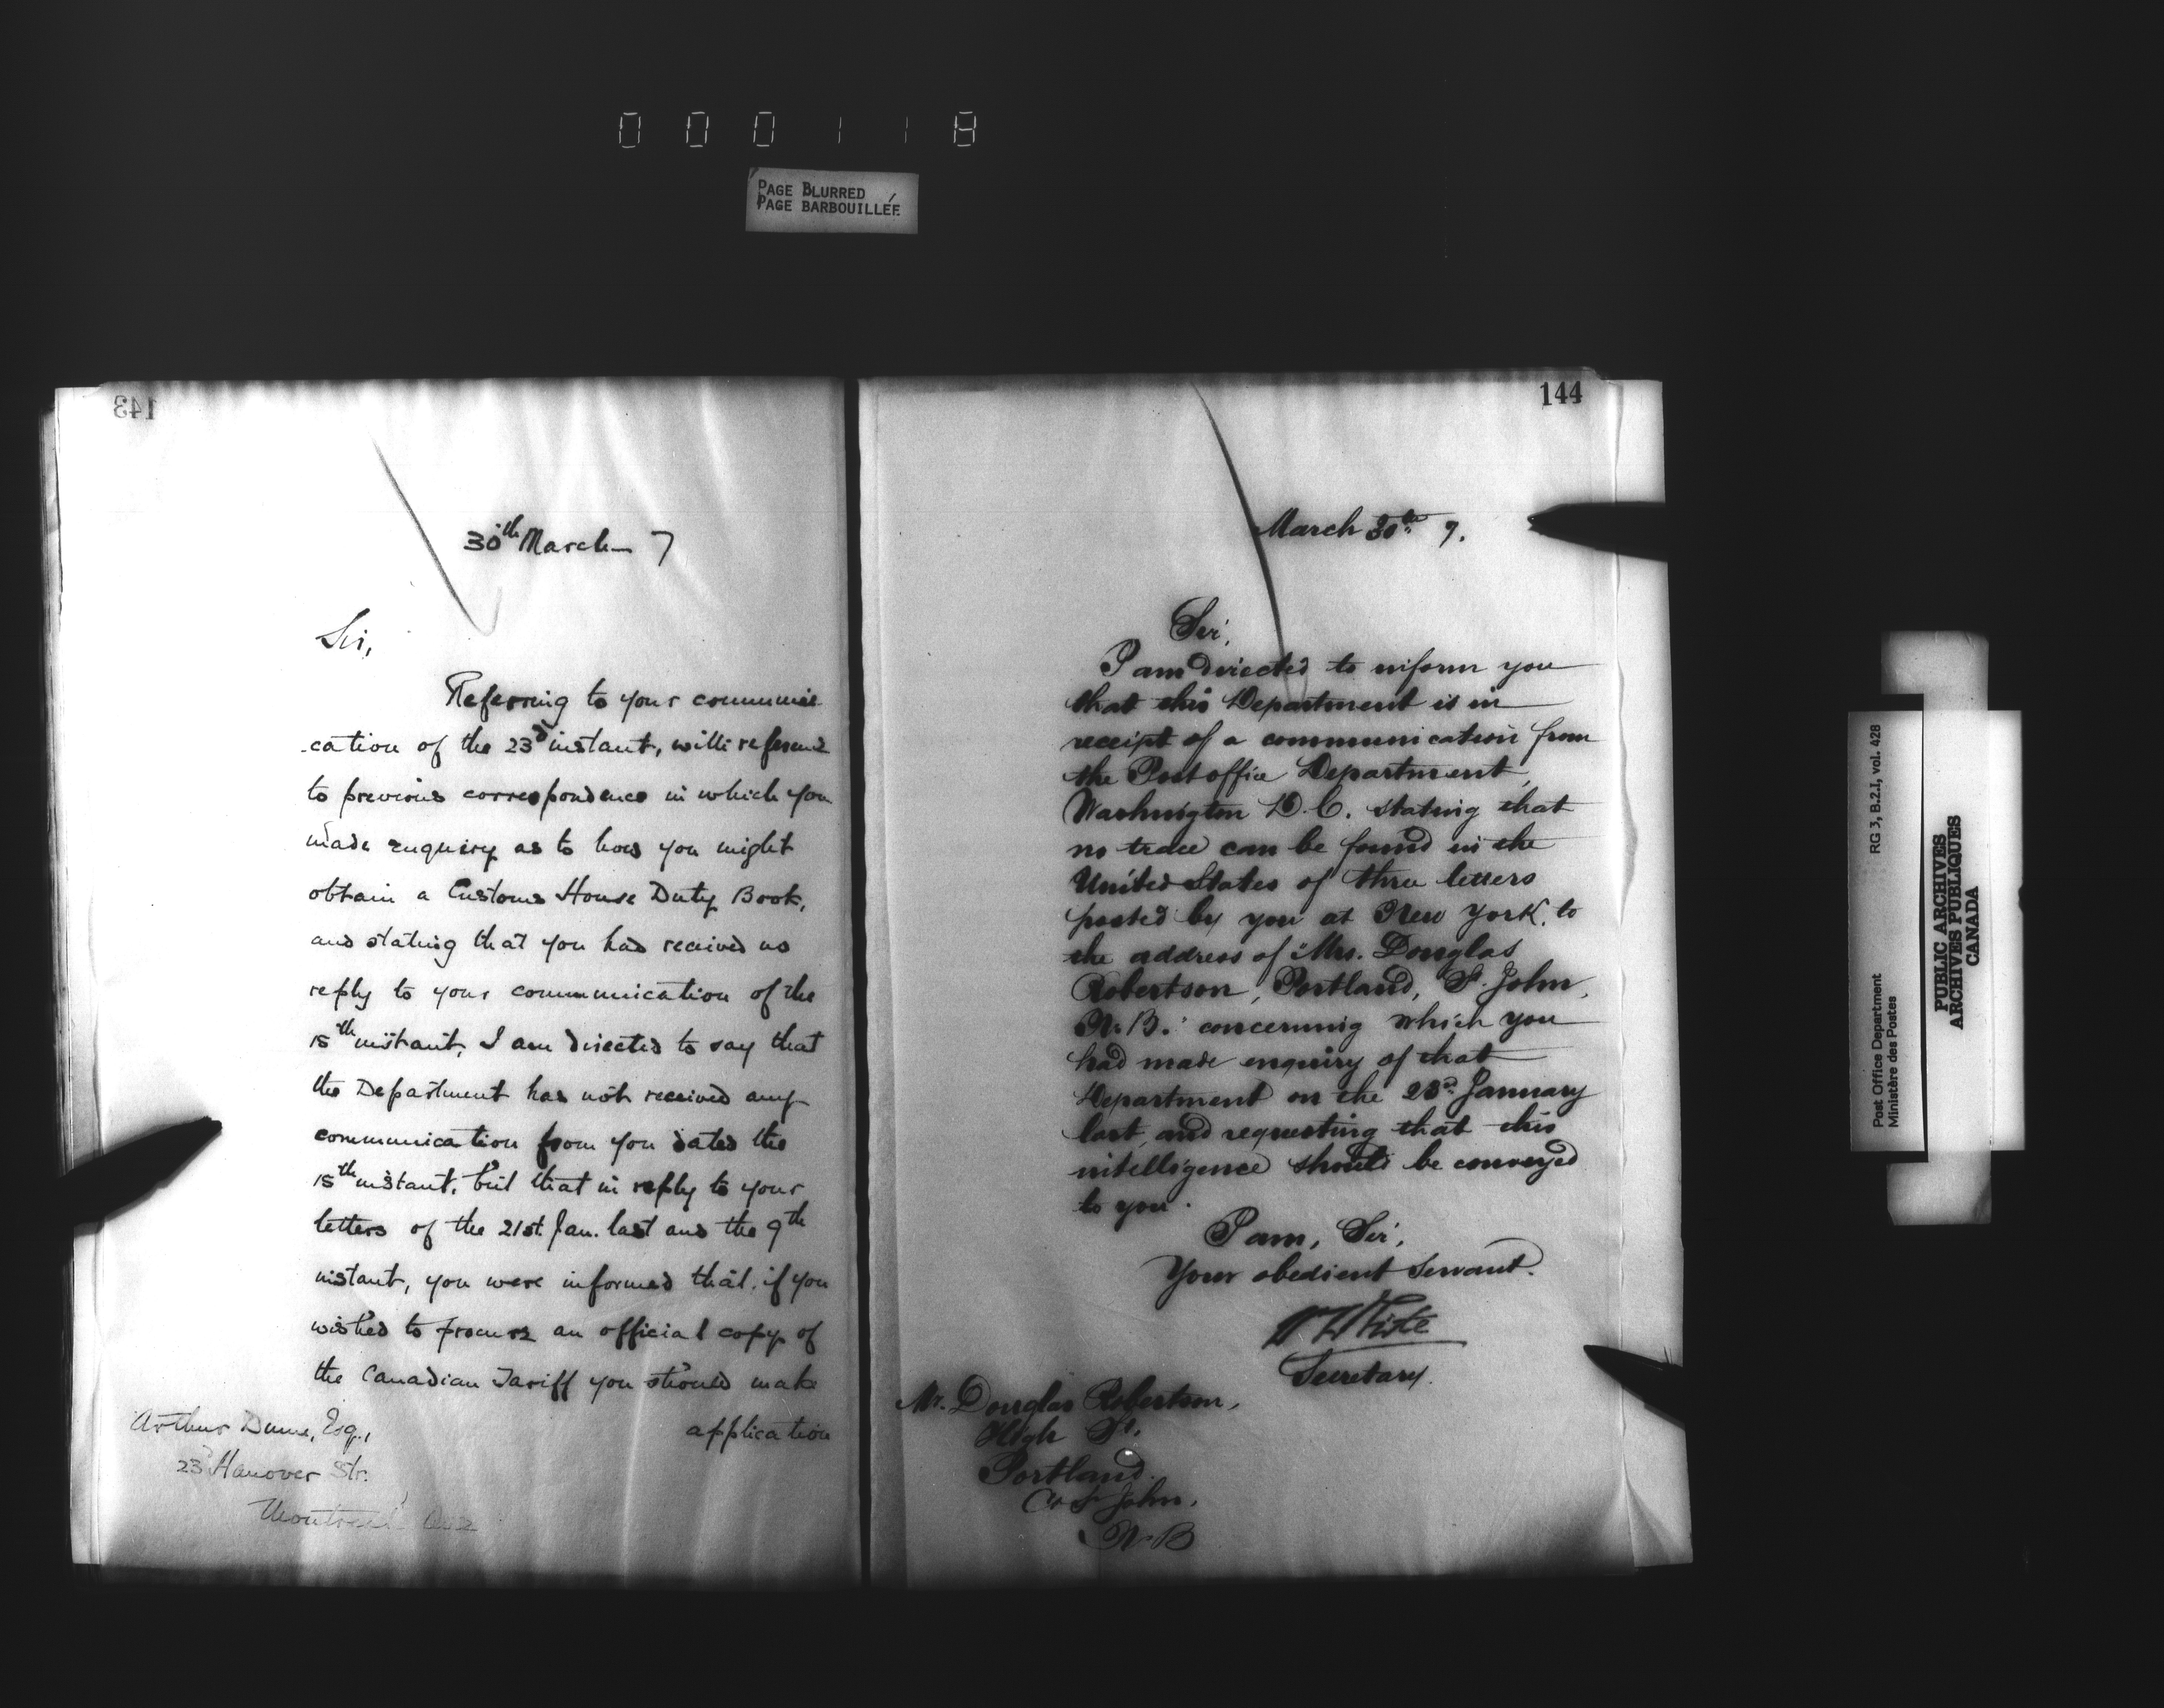 000118
PAGE BLURRED
PAGE BARBOUILLÉE
143
30th March 7
Sir,
Referring to your communi-
-cation of the 23d instant, with reference
to previous correspondence in which you
made enquiry as to how you might
obtain a Customs House Duty Book,
and stating that you had received no
reply to your communication of the
15th instant, I am directed to say that
the Department has not received any
communication from you dated the
15th instant, but that in reply to your
letters of the 21st. Jan. last and the 9th
instant, you were informed that if you
wished to procure an official copy of
the Canadian Tariff you should make
application
Arthur Esq.,
23 Hanover Str.
Montreal Que
144
March 30th 7.
Sir,
I am directed to inform you
that this Department is in
receipt of a communication from
the Post office Department,
Washington D.C. stating that
no trace can be found in the
United States of three letters
posted by you at New York, to
the address of "Mrs. Douglas
Robertson, Portland, St. John,
N.B." concerning which you
had made enquiry of that
Department on the 23d. January
last, and requesting that this
intelligence should be conveyed
to you.
I am, Sir,
Your obedient Servant.
W White
Secretary.
Mr. Douglas Robertson,
High St.
Portland.
Co St John.
N.B
Post Office Department
Ministère des Postes
RG 3, B.2.I, vol. 428
PUBLIC ARCHIVES
ARCHIVES PUBLIQUES
CANADA